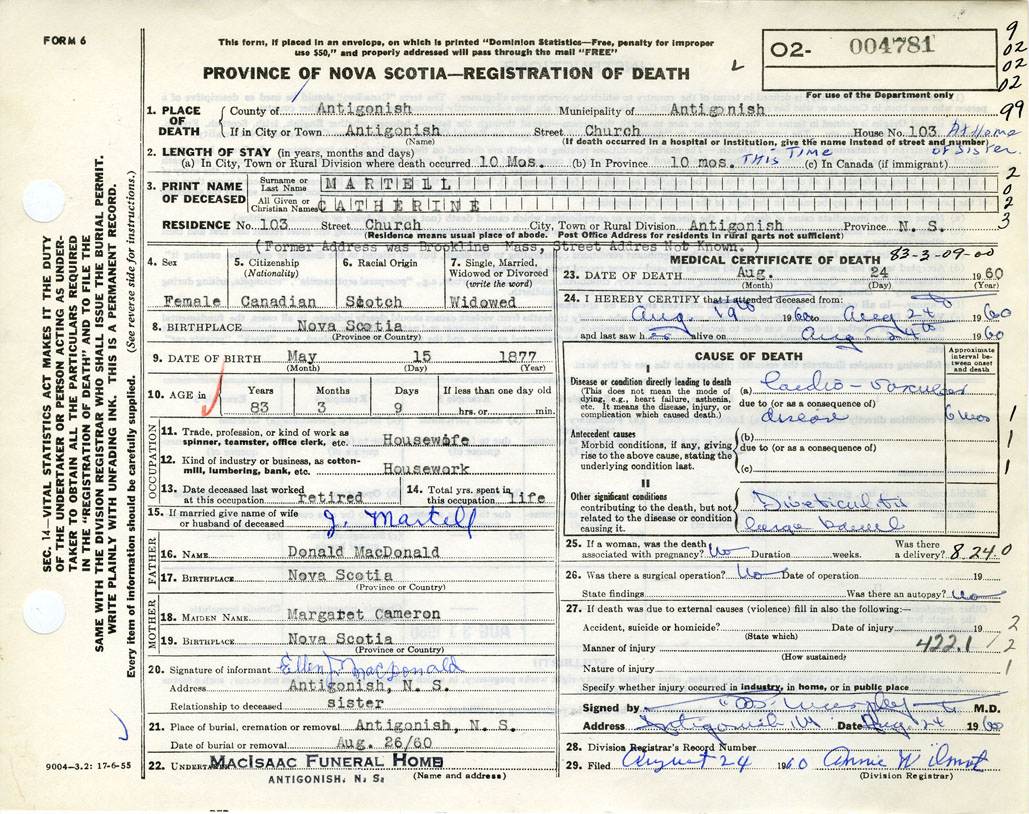 FORM 6
This form, if placed in an envelope, on which is printed "Dominion Statistics—Free, penalty for improper
use $50," and properly addressed will pass through the mail "FREE"
PROVINCE OF NOVA SCOTIA—REGISTRATION OF DEATH
O2- 004781
For use of the Department only
9
02
02
02
99
1. PLACE OF DEATH
County of Antigonish Municipality of Antigonish
If in City or Town Antigonish Street Church House No. 103 At Home
(Name) (If death occurred in a hospital or institution, give the name instead of street and number) of Sister.
2. LENGTH OF STAY (in years, months and days)
(a) In City, Town or Rural Division where death occurred 10 Mos. (b) In Province 10 mos. THIS TIME (c) In Canada (if immigrant)
3. PRINT NAME OF DECEASED
Surname or Last Name MARTELL
All Given or Christian Names CATHERINE
2
0
2
3
RESIDENCE No. 103 Street Church City, Town or Rural Division Antigonish Province N. S.
(Residence means usual place of abode. Post Office Address for residents in rural parts not sufficient)
(Former Address was Brookline Mass, Street Addres Not Known.
4. Sex Female
5. Citizenship (Nationality) Canadian
6. Racial Origin Scotch
7. Single, Married, Widowed or Divorced (write the word) Widowed
8. BIRTHPLACE Nova Scotia
(Province or Country)
9. DATE OF BIRTH May 15 1877
(Month) (Day) (Year)
10. AGE in Years Months Days If less than one day old
83 3 9 hrs. or min.
OCCUPATION
11. Trade, profession, or kind of work as
spinner, teamster, office clerk, etc. Housewife
12. Kind of industry or business, as cotton-
mill, lumbering, bank, etc. Housework
13. Date deceased last worked
at this occupation retired
14. Total yrs. spent in
this occupation life
15. If married give name of wife
or husband of deceased J. Martell
FATHER
16. NAME Donald MacDonald
17. BIRTHPLACE Nova Scotia
(Province or Country)
MOTHER
18. MAIDEN NAME Margaret Cameron
19. BIRTHPLACE Nova Scotia
(Province or Country)
20. Signature of informant Ellen J. MacDonald
Address Antigonish, N. S.
Relationship to deceased sister
21. Place of burial, cremation or removal Antigonish, N. S.
Date of burial or removal Aug. 26/60
22. UNDERTAKER MACISAAC FUNERAL HOME
ANTIGONISH, N. S. (Name and address)
MEDICAL CERTIFICATE OF DEATH 83-3-09-00
23. DATE OF DEATH Aug. 24 1960
(Month) (Day) (Year)
24. I HEREBY CERTIFY that I attended deceased from:
Aug. 19th 1960 to Aug 24 1960
and last saw h alive on Aug. 24th 1960
CAUSE OF DEATH
Approximate interval between onset and death
I
Disease or condition directly leading to death
(This does not mean the mode of
dying, e.g., heart failure, asthenia,
etc. It means the disease, injury, or
complication which caused death.)
(a) Cardio-vascular
due to (or as a consequence of)
disease 6 mos
1
1
1
Antecedent causes
Morbid conditions, if any, giving
rise to the above cause, stating the
underlying condition last.
(b)
due to (or as a consequence of)
(c)
II
Other significant conditions
contributing to the death, but not
related to the disease or condition
causing it.
Diverticulitis
large bowel
25. If a woman, was the death
associated with pregnancy? No Duration weeks. Was there
a delivery? 8 24.0
26. Was there a surgical operation? No Date of operation 19
State findings Was there an autopsy? No
27. If death was due to external causes (violence) fill in also the following:—
Accident, suicide or homicide? Date of injury 19 2
(State which)
Manner of injury 422.1 / 2
(How sustained)
Nature of injury 1
Specify whether injury occurred in industry, in home, or in public place
Signed by Murphy M.D.
Address Antigonish Date Aug 24 1960
28. Division Registrar's Record Number
29. Filed August 24 1960 Annie Wilmot
(Division Registrar)
SEC. 14—VITAL STATISTICS ACT MAKES IT THE DUTY
OF THE UNDERTAKER OR PERSON ACTING AS UNDER-
TAKER TO OBTAIN ALL THE PARTICULARS REQUIRED
IN THE "REGISTRATION OF DEATH" AND TO FILE THE
SAME WITH THE DIVISION REGISTRAR WHO SHALL ISSUE THE BURIAL PERMIT.
WRITE PLAINLY WITH UNFADING INK. THIS IS A PERMANENT RECORD.
Every item of information should be carefully supplied. (See reverse side for instructions.)
9004—3.2: 17-6-55